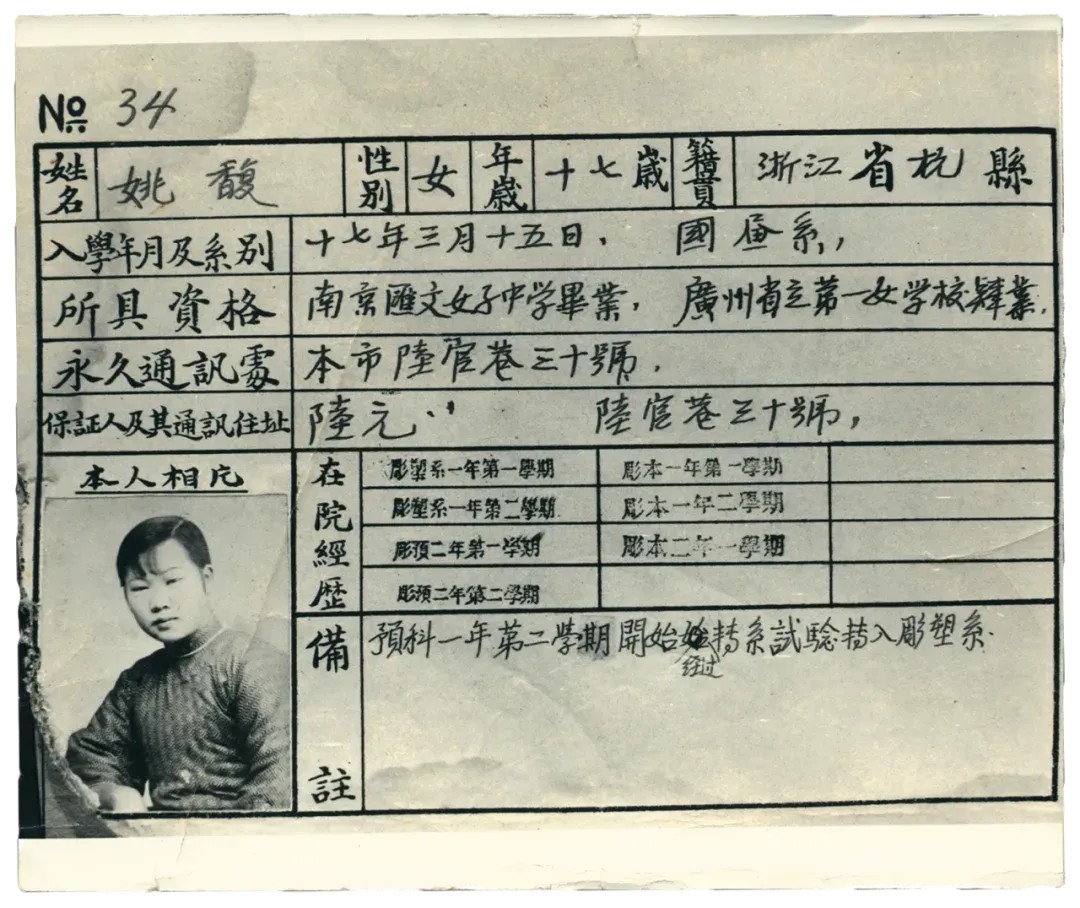 № 34
姓名 姚馥 性別 女 年歲 十七歲 籍貫 浙江省杭縣
入學年月及系別 十七年三月十五日. 國画系,
所具資格 南京匯文女子中学畢業, 廣州省立第一女学校肄業.
永久通訊處 本市陸官巷三十號.
保証人及其通訊住址 陸元 陸官巷三十號,
本人相片
在院經歷
彫塑系一年第一學期 彫本一年第一學期
彫塑系一年第二學期 彫本一年二學期
彫預二年第一学期 彫本二年一學期
彫預二年第二學期
備註
預科一年第二学期開始 转系試驗转入彫塑系.
经过